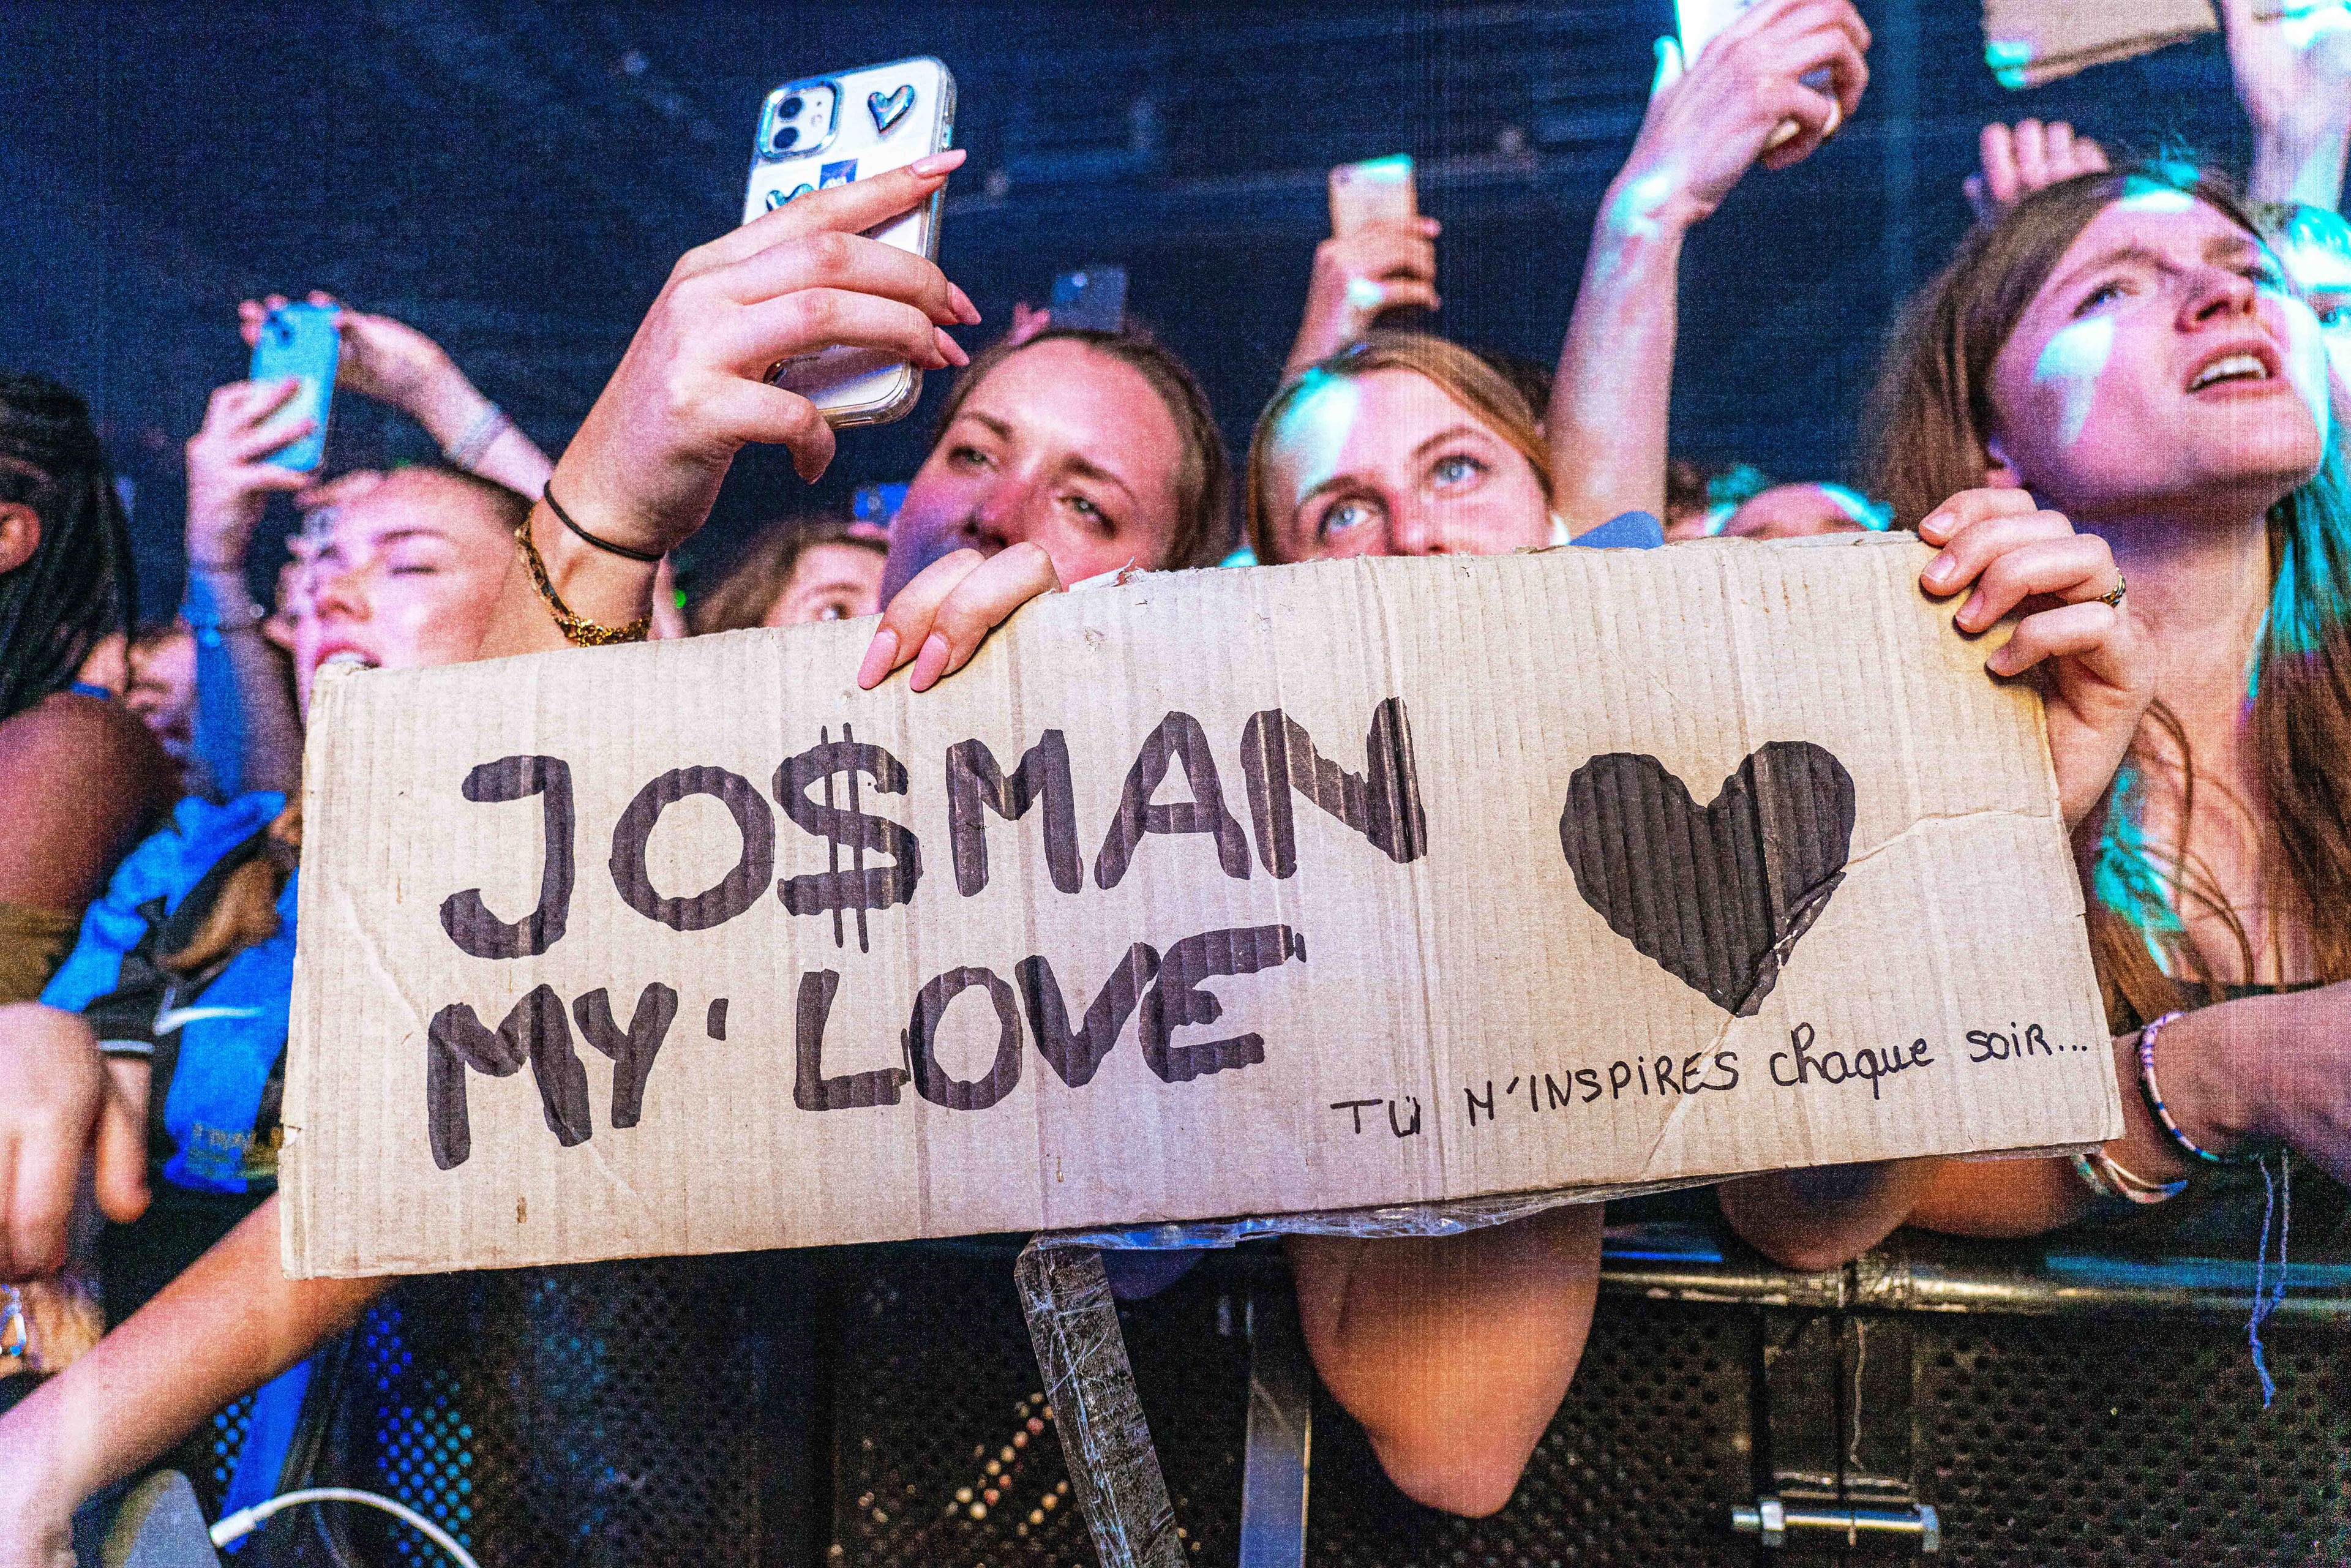 JO$MAN
MY' LOVE
TU M'INSPIRES chaque soir...